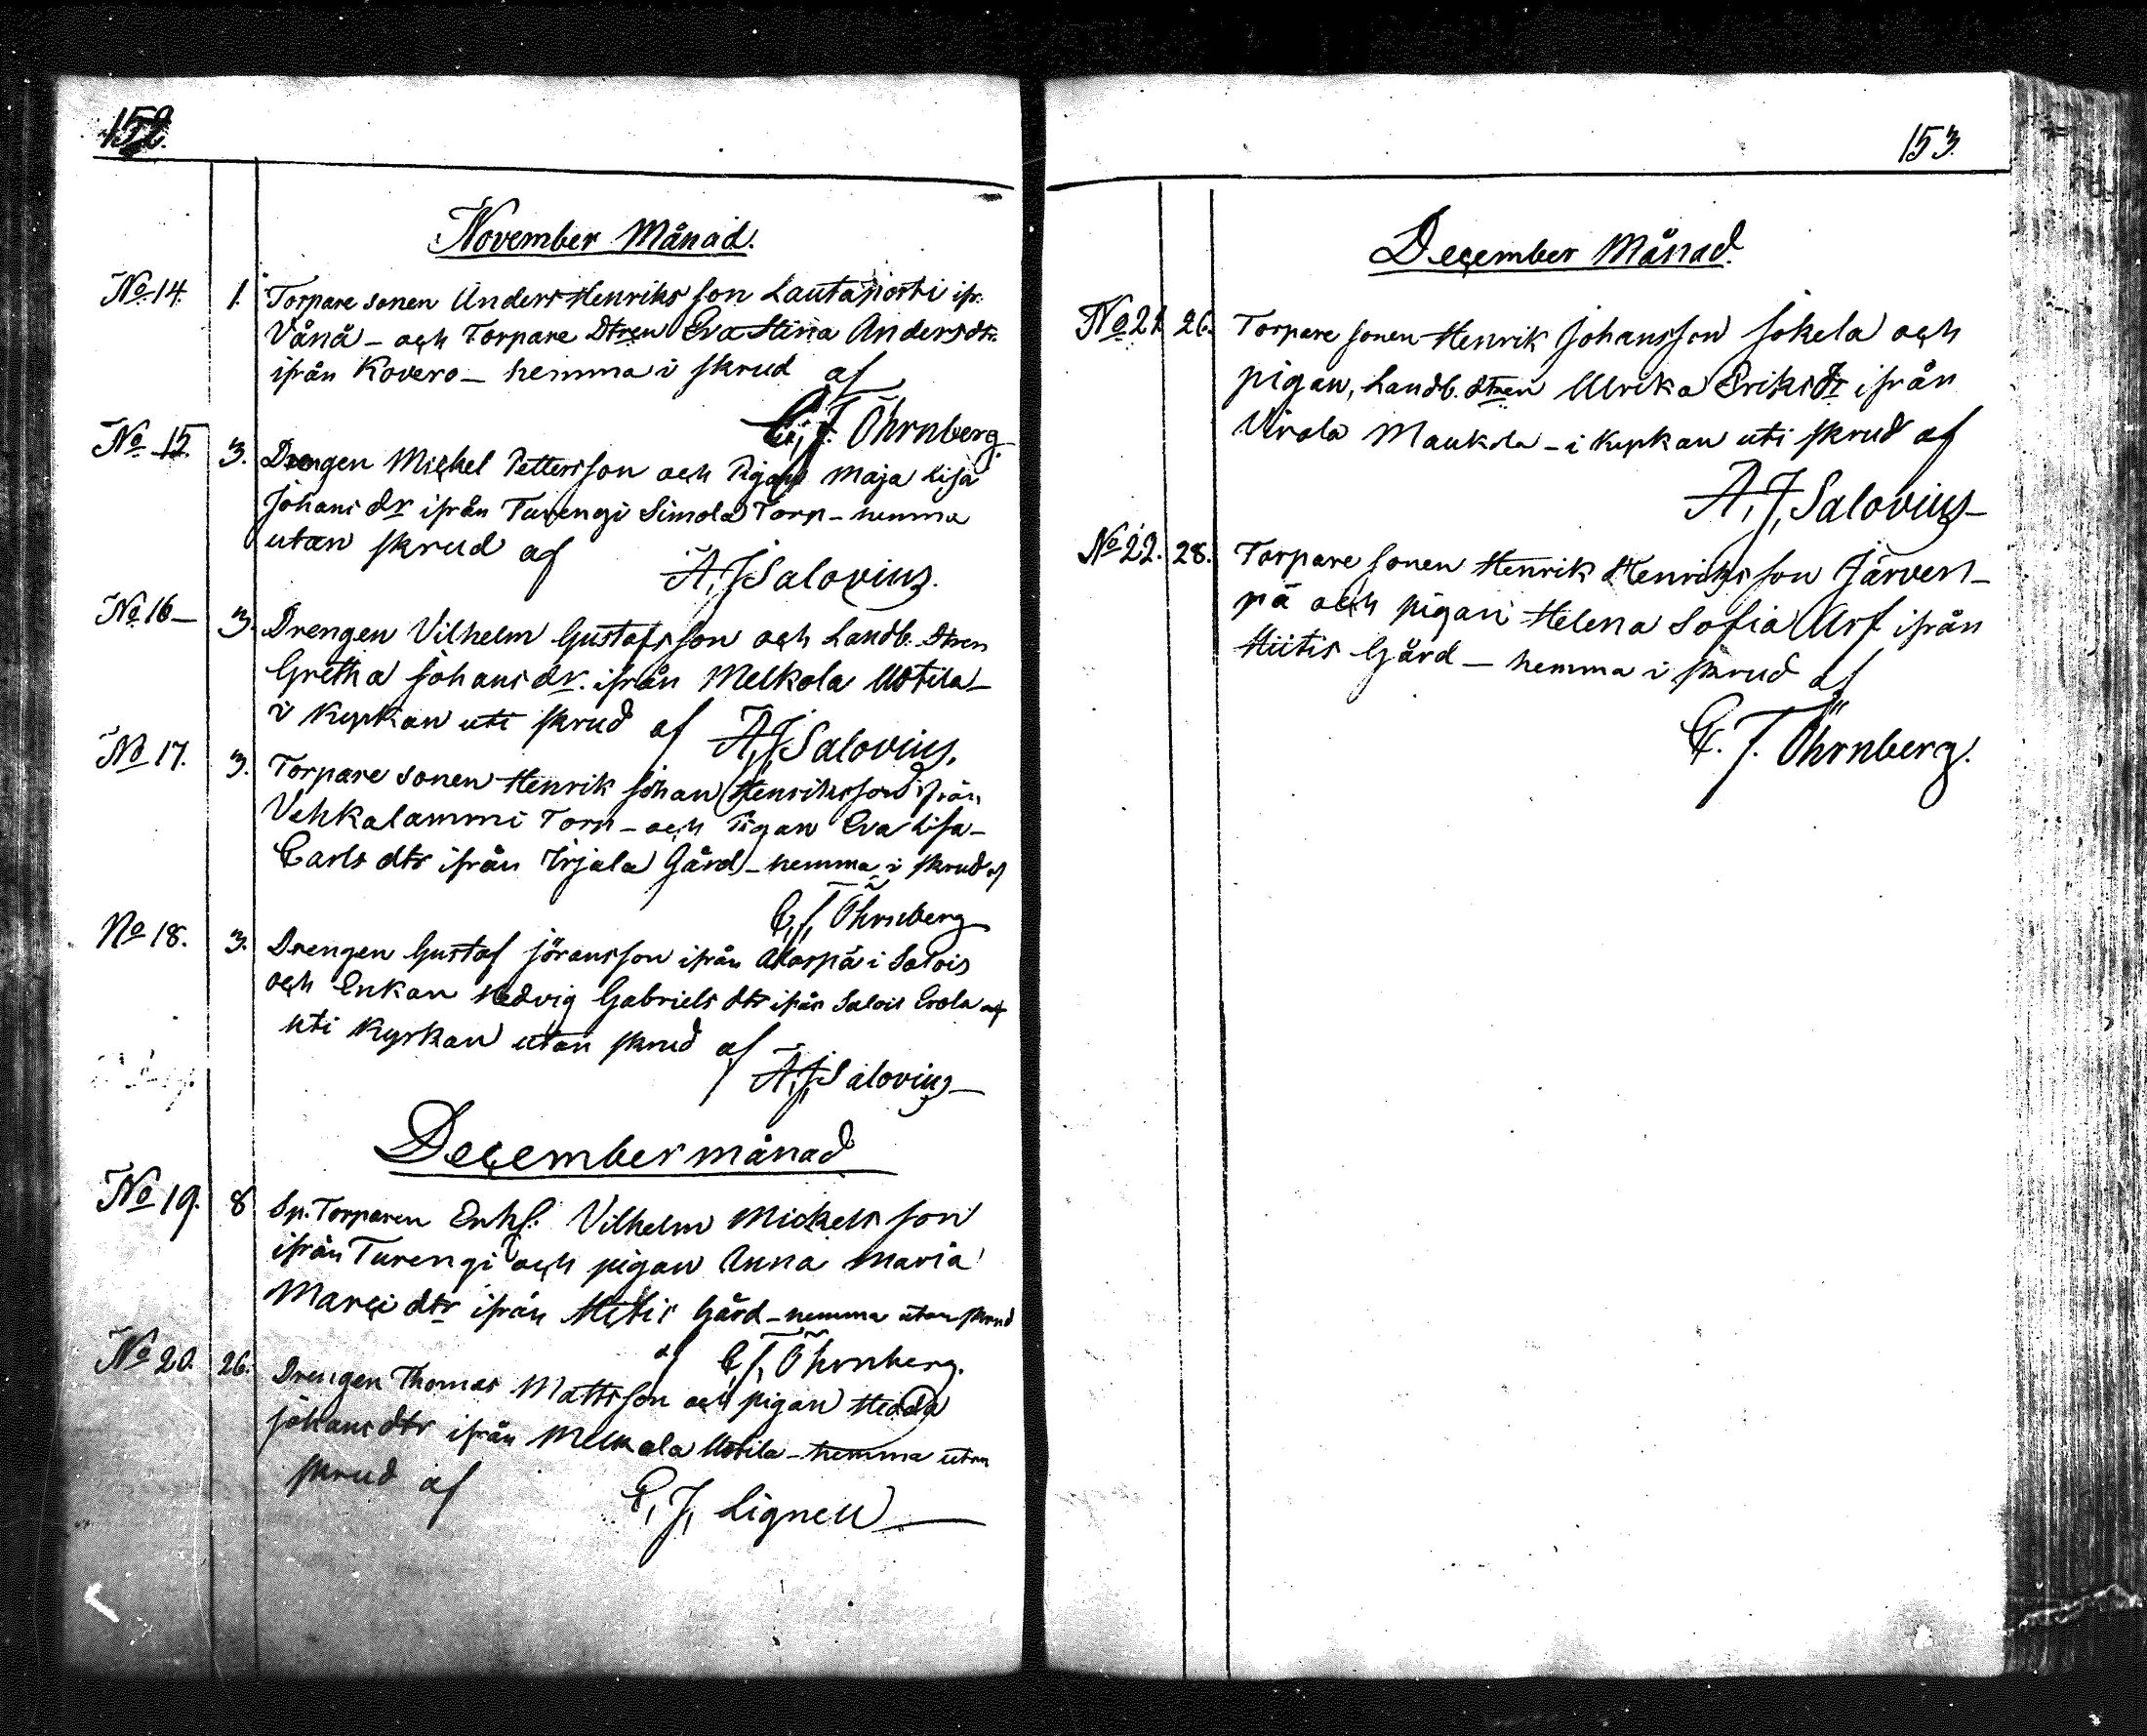 152.
November Månad.
No 14. 1. Torpare sonen Anders Henriksson Lautaportti ifr.
Vånå – och Torpare Dtren Eva Stina Andersdtr.
ifrån Kovero – hemma i skrud af
C. J. Öhrnberg
No 15. 3. Drengen Mickel Pettersson och Pigan Maja Lisa
Johans dr ifrån Turengi Simola Torp – hemma
utan skrud af A. J. Salovius.
No 16 – 3. Drengen Vilhelm Gustafsson och Landb. Dtren
Gretha Johans dr. ifrån Melkola Uotila –
i Kyrkan uti skrud af A. J. Salovius.
No 17. 3. Torpare sonen Henrik Johan Henriksson ifrån
Vehkalammi Torp – och Pigan Eva Lisa –
Carls dtr ifrån Irjala Gård – hemma i skrud af
C. J. Öhrnberg
No 18. 3. Drengen Gustaf Jöransson ifrån i Salois
och Enkan Hedvig Gabriels dtr ifrån Salois Erola
uti Kyrkan utan skrud af
A. J. Salovius –
December månad
No 19. 8 Sp. Torparen Enkl. Vilhelm Mickelsson
ifrån Turengi och pigan Anna Maria
Marci dtr ifrån Hietis Gård – hemma utan skrud
af C. J. Öhrnberg.
No 20. 26. Drengen Thomas Mattsson och pigan Hedda
Johans dtr ifrån Melkola Uotila – hemma utan
skrud af C. J. Lignell –
153.
December Månad.
No 21. 26. Torpare sonen Henrik Johansson Jokela och
pigan, Landb. dtren Ulrika Eriksdr ifrån
Virala Maukola – i Kyrkan uti skrud af
A. J. Salovius –
No 22. 28. Torpare sonen Henrik Henriksson Järven-
pä och pigan Helena Sofia Arf ifrån
Hiitis Gård – hemma i skrud af
C. J. Öhrnberg.